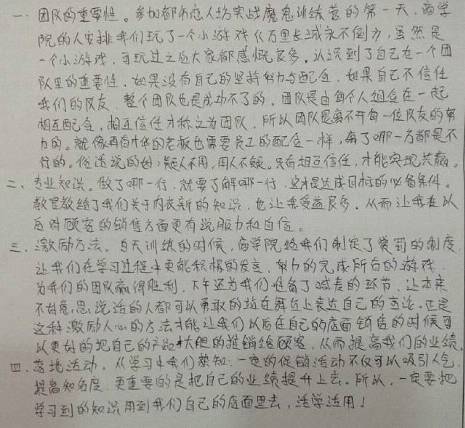 一、团队的重要性。参加都市恋人坊实战魔鬼训练营的第一天，商学
院的人安排我们玩了一个小游戏《万里长城永不倒》，虽然是
一个小游戏，可玩过之后大家都感慨很多。认识到了自己在一个团
队里的重要性，如果没有自己的坚持努力与配合，如果自己不信任
我们的队友，整个团队也是成功不了的。团队是由每个人组合在一起
相互配合，相互信任才称之为团队。所以团队是离不开每一位队友的努
力的。就像再有才华的老板也需要员工的配合一样，离了哪一方都是不
行的。俗话说的好：疑人不用，用人不疑。只有相互信任，才能实现共赢。
二、专业知识。做了哪一行，就要了解哪一行，这才是达成目标的必备条件。
教官教给了我们关于内衣新的知识，也让我受益良多。从而让我在以
后对顾客的销售方面更有说服力和自信。
三、激励方法。每天训练的时候，商学院给我们制定了奖罚的制度
让我们在学习过程中更能积极的发言，努力的完成所有的游戏
为我们的团队赢得胜利，下午还为我们准备了喊麦的环节，让本来
不好意思说话的人都可以勇敢的站在舞台上表达自己的言论。正是
这种激励人心的方法才能让我们以后在自己的店面销售的时候可
以更好的把自己的产品大胆的推销给顾客，从而提高我们的业绩。
四、落地活动。从学习中我们获知：一定的促销活动不仅可以吸引人气
提高知名度，更重要的是把自己的业绩提升上去。所以，一定要把
学习到的知识用到我们自己的店面里去，活学活用！